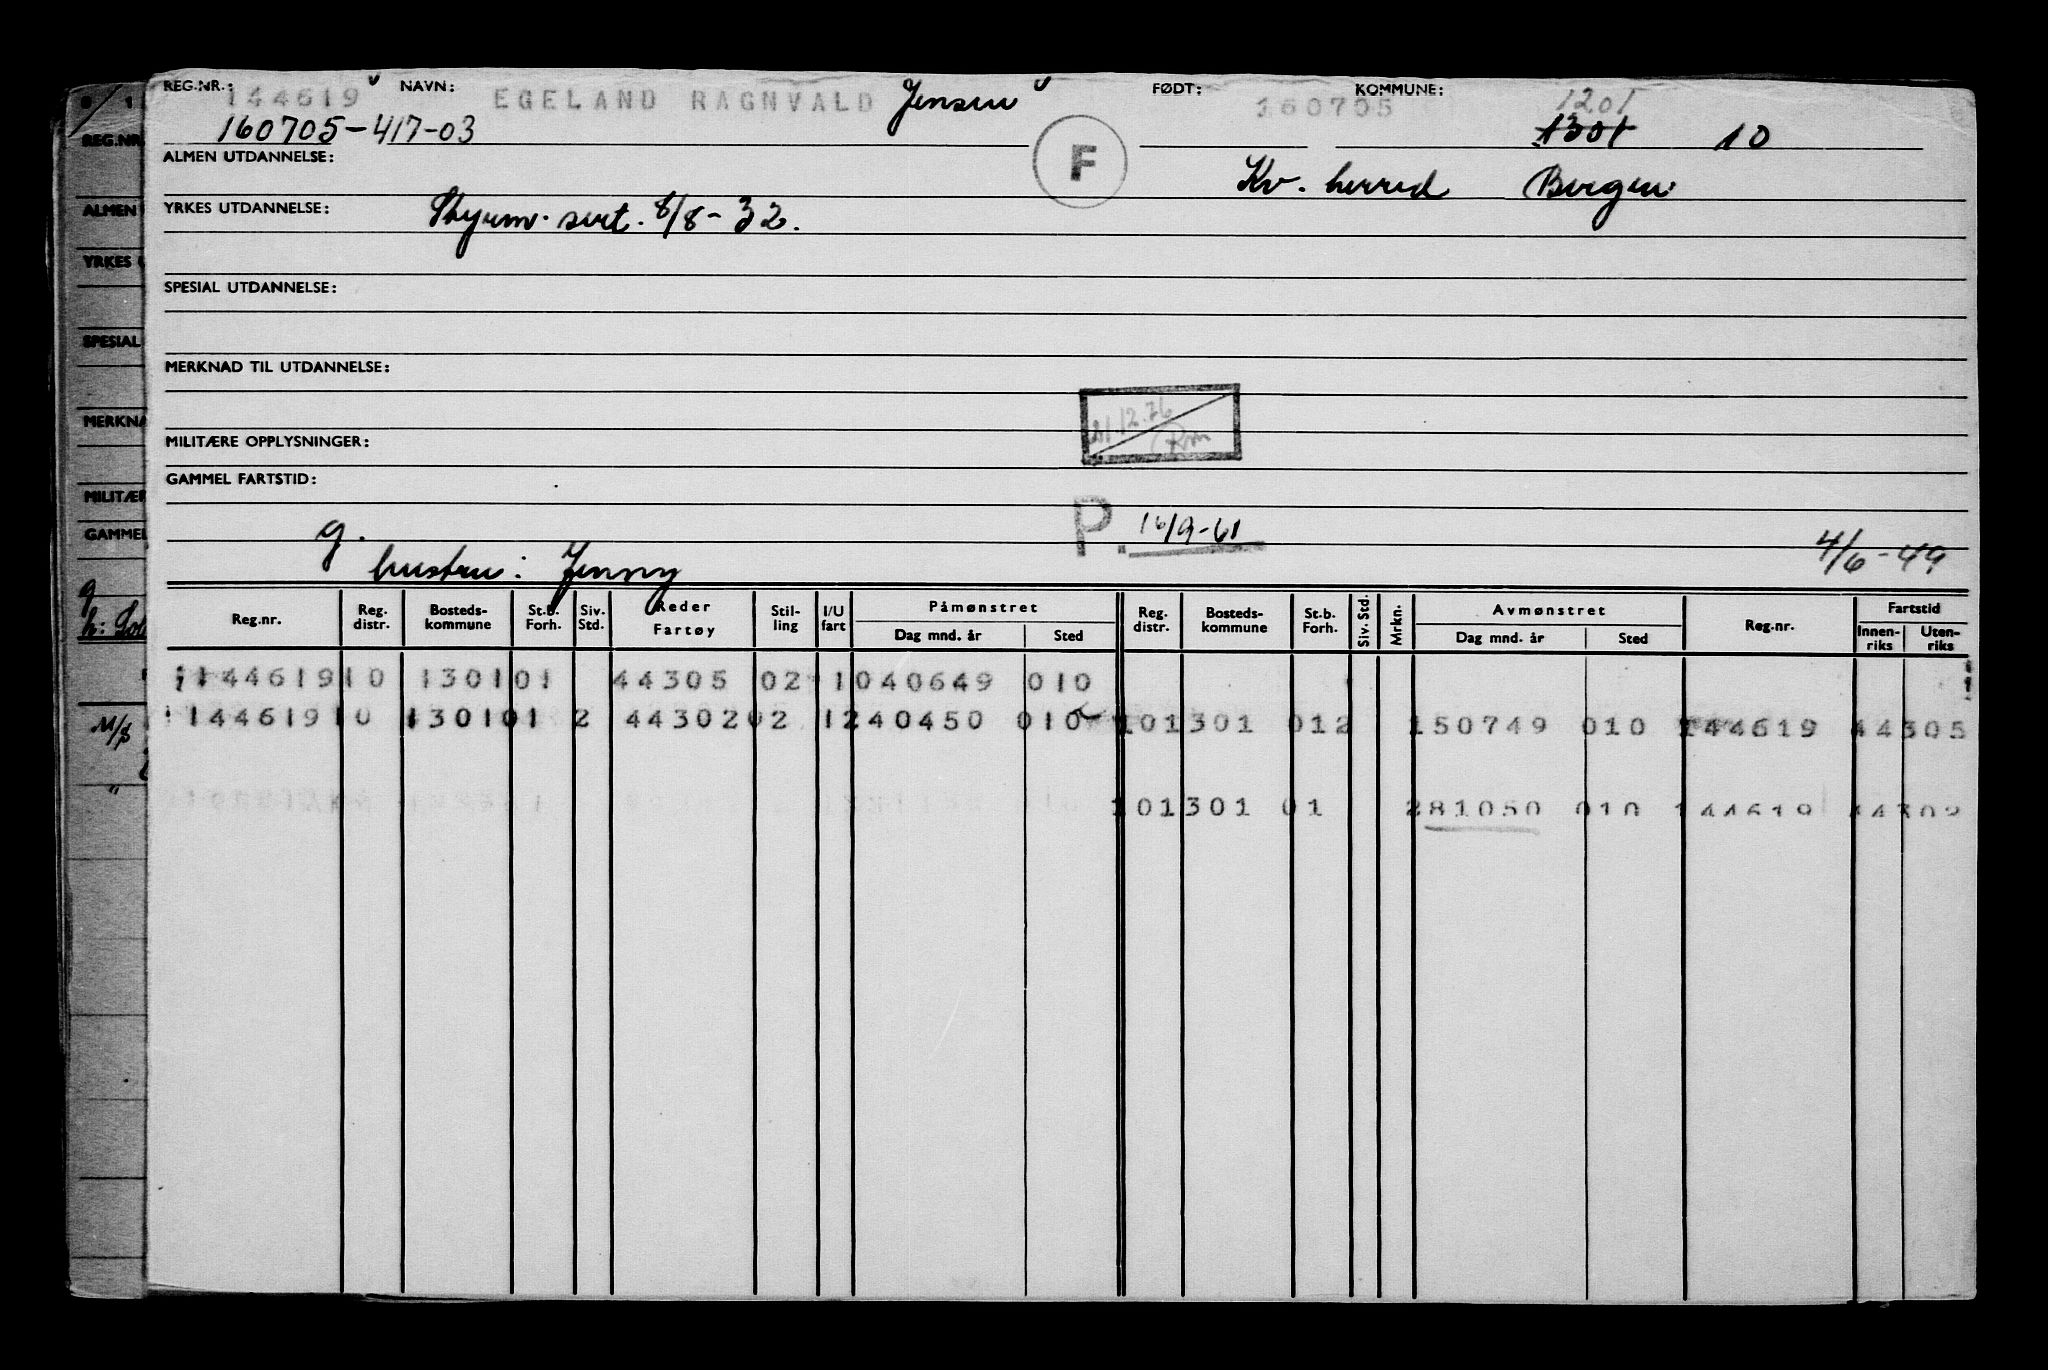 REG.NR.: 144619 v NAVN: EGELAND RAGNVALD Jensen v FØDT: 160705 KOMMUNE: 1201
160705-417-03 1301 10
ALMEN UTDANNELSE: F Kv. herred Bergen
YRKES UTDANNELSE: Styrm. sert. 8/8-32.
SPESIAL UTDANNELSE:
MERKNAD TIL UTDANNELSE:
21.12.76
MILITÆRE OPPLYSNINGER:
GAMMEL FARTSTID:
g. P. 16/9-61 4/6-49
hustru: Jenny
Reg.nr. Reg. distr. Bosteds- kommune St.b. Forh. Siv. Std. Reder Fartøy Stil- ling I/U fart Påmønstret Dag mnd. år Sted Reg. distr. Bosteds- kommune St.b. Forh. Siv. Std. Mrkn. Avmønstret Dag mnd. år Sted Reg.nr. Fartstid Innen- riks Uten- riks
144619 10 1301 01 44305 02 1 040649 010
144619 10 1301 01 2 44302 02 1 240450 010 10 1301 012 150749 010 144619 44305
10 1301 01 281050 010 144619 44302
REG.NR
ALMEN
YRKES
SPESIAL
MERKNA
MILITÆR
GAMMEL
g
M/S
"